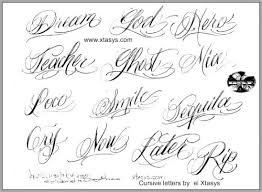 Dream God Nero
www.xtasys.com
Teacher Ghost Mia
Loco Smile Tequila
Cry Now Later Rip
xtasys.com
Cursive letters by el Xtasys